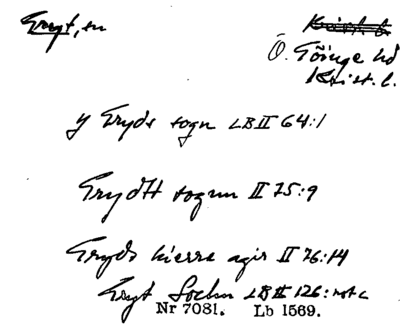 Gryt, sn
Krist. l.
Ö. Göinge hd
Krist. l.
y Gryds sogn LB II 64:1
Grydtt sognn II 75:9
Gryds kierre agir II 76:14
Gryt Sochn LB III 126: not c
Nr 7081. Lb 1569.